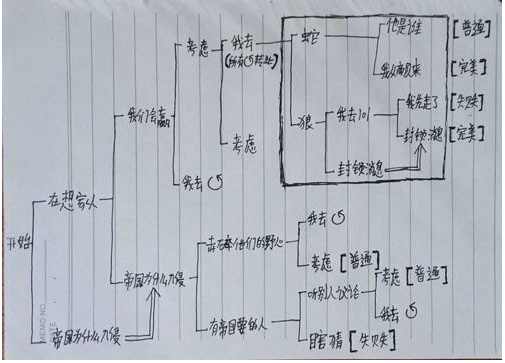 开始
在想家人
帝国为什么入侵
我们会赢
帝国为什么入侵
考虑
我去
考虑
我去
(所有↺转此)
蛇
狼
他是谁 [普通]
我从南边来 [完美]
我去101
封锁消息
我先走了 [失败]
封锁消息 [完美]
击碎他们的野心
有帝国要的人
我去
考虑 [普通]
听别人议论
瞎猜 [失败]
考虑 [普通]
我去
MEMO NO.